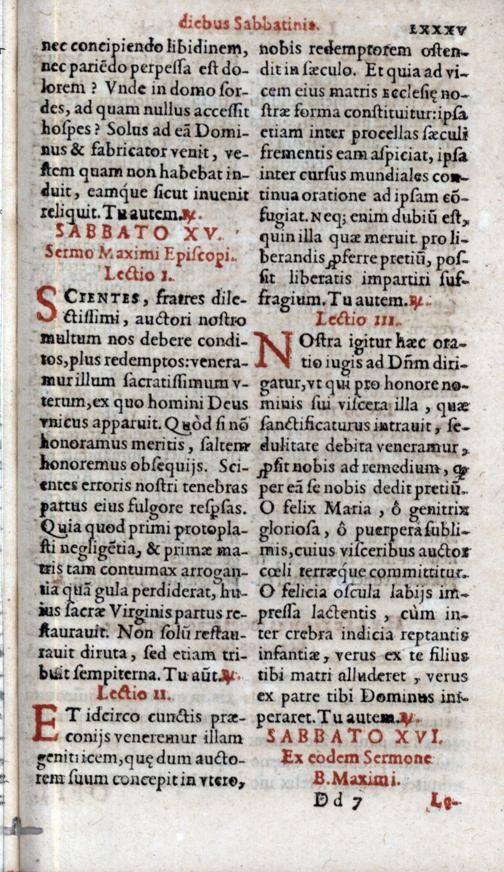 diebus Sabbatinis.
LXXXV
nec concipiendo libidinem,
nec pariẽdo perpeſſa eſt do-
lorem ? Vnde in domo ſor-
des, ad quam nullus acceſſit
hoſpes ? Solus ad eã Domi-
nus & fabricator venit, ve-
ſtem quam non habebat in-
duit, eamque ſicut inuenit
reliquit. Tu autem. ℟.
SABBATO XV.
Sermo Maximi Epiſcopi.
Lectio I.
SCIENTES, fratres dile-
ctiſſimi, auctori noſtro
multum nos debere condi-
tos, plus redemptos: venera-
mur illum ſacratiſſimum v-
terum, ex quo homini Deus
vnicus apparuit. Quòd ſi nõ
honoramus meritis, ſaltem
honoremus obſequijs. Sci-
entes erroris noſtri tenebras
partus eius fulgore reſpſas.
Quia quod primi protopla-
ſti negligẽtia, & primæ ma-
tris tam contumax arrogan-
tia quã gula perdiderat, hu-
ius ſacræ Virginis partus re-
ſtaurauit. Non ſolũ reſtau-
rauit diruta, ſed etiam tri-
buit ſempiterna. Tu aũt. ℟.
Lectio II.
ET idcirco cunctis præ-
conijs veneremur illam
genitricem, quę dum aucto-
rem ſuum concepit in vtero,
nobis redemptorem oſten-
dit in ſæculo. Et quia ad vi-
cem eius matris Eccleſię no-
ſtræ forma conſtituitur: ipſa
etiam inter procellas ſæculi
frementis eam aſpiciat, ipſa
inter curſus mundiales con-
tinua oratione ad ipſam cõ-
fugiat. Neq; enim dubiũ eſt,
quin illa quæ meruit pro li-
berandis ꝓferre pretiũ, poſ-
ſit liberatis impartiri ſuf-
fragium. Tu autem. ℟.
Lectio III.
NOſtra igitur hæc ora-
tio iugis ad Dñm diri-
gatur, vt qui pro honore no-
minis ſui viſcera illa, quæ
ſanctificaturus intrauit, ſe-
dulitate debita veneramur,
ꝓſit nobis ad remedium, ꝙ
per eã ſe nobis dedit pretiũ.
O felix Maria, ô genitrix
glorioſa, ô puerpera ſubli-
mis, cuius viſceribus auctor
cœli terræque committitur.
O felicia oſcula labijs im-
preſſa lactentis, cùm in-
ter crebra indicia reptantis
infantiæ, verus ex te filius
tibi matri alluderet, verus
ex patre tibi Dominus im-
peraret. Tu autem. ℟.
SABBATO XVI.
Ex eodem Sermone
B. Maximi.
D d 7
Le-